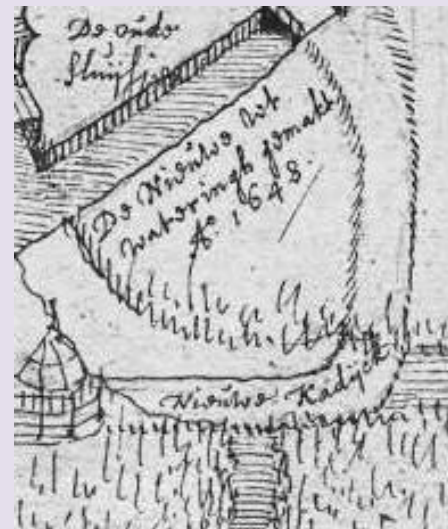 De oude
sluijsje
De Nieuwe wt
wateringh gemakt
Aº. 1648.
Nieuwe Kadijck